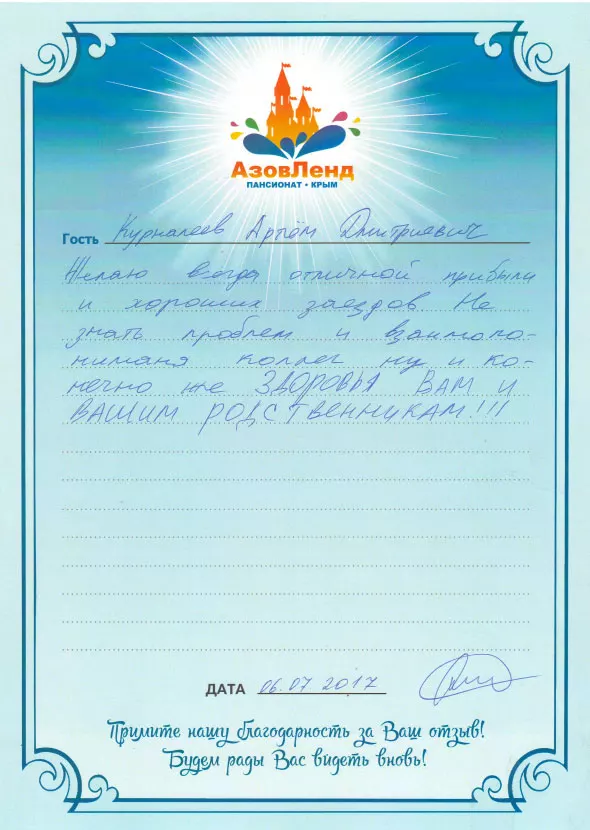 АзовЛенд
ПАНСИОНАТ • КРЫМ
Гость Курналеев Артём Дмитриевич
Желаю всегда отличной прибыли
и хороших заездов. Не
знать проблем и взаимопо-
нимания коллег ну и ко-
нечно же ЗДОРОВЬЯ ВАМ и
ВАШИМ РОДСТВЕННИКАМ!!!
ДАТА 06.07 2017
Примите нашу благодарность за Ваш отзыв!
Будем рады Вас видеть вновь!